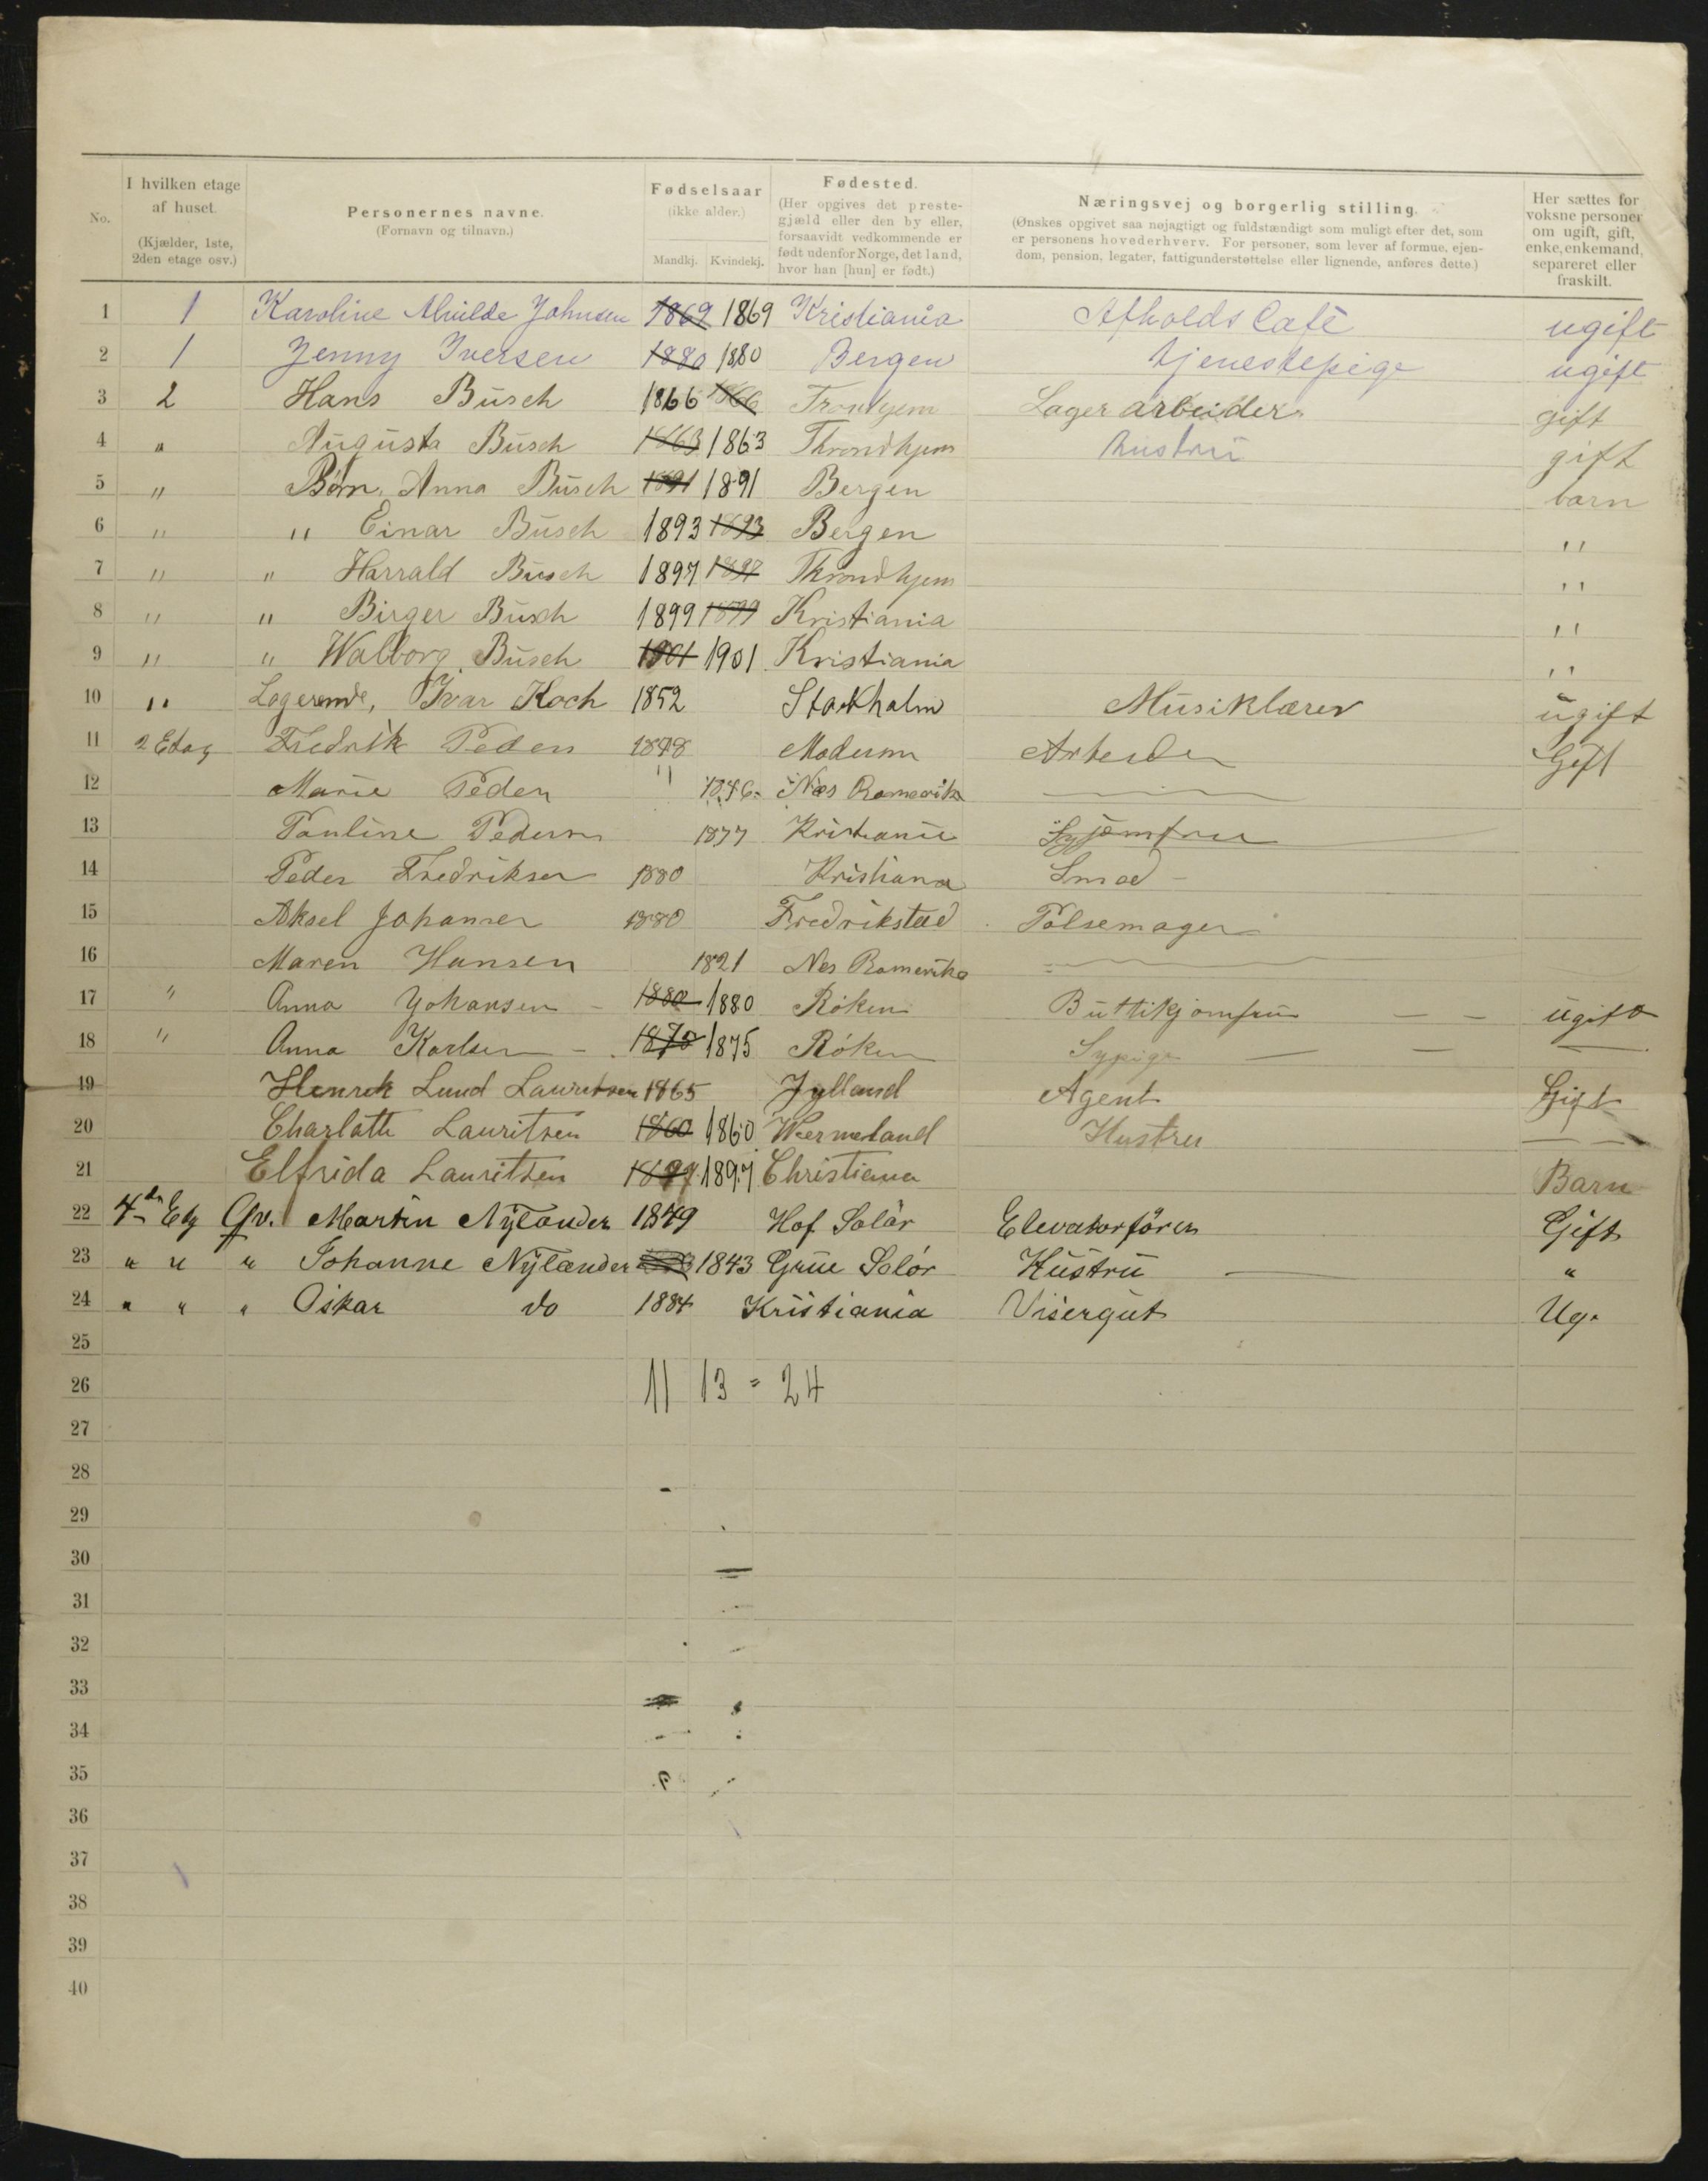 No. I hvilken etage af huset. (Kjælder, 1ste, 2den etage osv.) Personernes navne. (Fornavn og tilnavn.) Fødselsaar (ikke alder.) Mandkj. Kvindekj. Fødested. (Her opgives det prestegjæld eller den by eller, forsaavidt vedkommende er født udenfor Norge, det land, hvor han [hun] er født.) Næringsvej og borgerlig stilling. (Ønskes opgivet saa nøjagtigt og fuldstændigt som muligt efter det, som er personens hovederhverv. For personer, som lever af formue, ejendom, pension, legater, fattigunderstøttelse eller lignende, anføres dette.) Her sættes for voksne personer om ugift, gift, enke, enkemand, separeret eller fraskilt.
1 1 Karoline Johnsen 1869 1869 Kristiania Afholds Café ugift
2 1 Jenny Iversen 1880 1880 Bergen tjenestepige ugift
3 2 Hans Busch 1866 1866 Trontjem Lager arbeider gift
4 " Augusta Busch 1863 1863 Throndhjem hustru gift
5 " Børn, Anna Busch 1891 1891 Bergen barn
6 " " Einar Busch 1893 1893 Bergen "
7 " " Harrald Busch 1897 1897 Throndhjem "
8 " " Birger Busch 1899 1899 Kristiania "
9 " " Walborg Busch 1901 1901 Kristiania "
10 " Logerende, Ivar Koch 1852 Stockholm Musiklærer ugift
11 2 Etag Fredrik Peders Modum Arbeider Gift
12 Marie Peder Næs Romerike
13 Pauline Pedersen 1877 Kristiania Syjomfru
14 Peder Fredriksen 1880 Kristiana Smed
15 Aksel Johansen 1880 Fredrikstad Pølsemager
16 Maren Hansen 1821 Nes Romerike
17 " Anna Johansen 1880 1880 Röken Buttikjomfru ugift
18 " Anna Karlsen 1875 Röken Sypige
19 Henrik Lund Lauritsen 1865 Jylland Agent Gift
20 Charlotte Lauritsen 1860 1860 Wermeland Hustru
21 Elfrida Lauritsen 1897 1897 Christiana Barn
22 4de Etg Gv. Martin Nylander 1849 Hof Solör Elevatorförer Gift
23 " " " Johanne Nylænder 1843 Grue Solór Hustru "
24 " " " Oskar do 1884 Kristiania Visergut Ug.
25
26 11 13 = 24
27
28
29
30
31
32
33
34
35
36
37
38
39
40